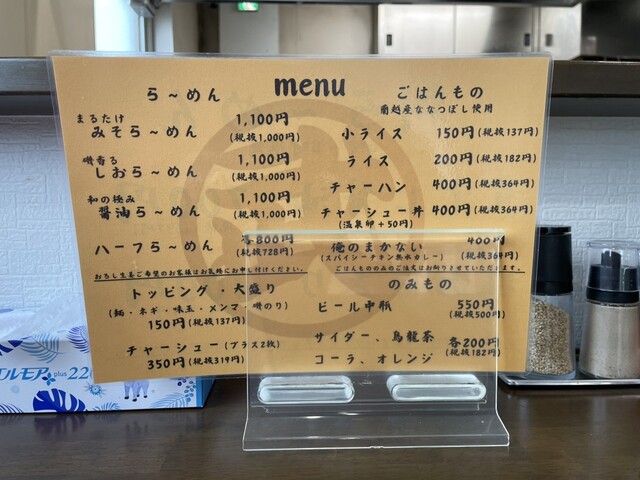 menu
ら～めん
まるたけ
みそら～めん
1,100円
(税抜1,000円)
磯香る
しおら～めん
1,100円
(税抜1,000円)
和の極み
醤油ら～めん
1,100円
(税抜1,000円)
ハーフら～めん
各800円
(税抜728円)
おろし生姜ご希望のお客様はお気軽にお申し付けください。
トッピング・大盛り
(麺・ネギ・味玉・メンマ・磯のり)
150円(税抜137円)
チャーシュー(プラス2枚)
350円(税抜319円)
ごはんもの
蘭越産ななつぼし使用
小ライス 150円(税抜137円)
ライス 200円(税抜182円)
チャーハン 400円(税抜364円)
チャーシュー丼 400円(税抜364円)
(温泉卵+50円)
俺のまかない 400円
(スパイシーチキン無水カレー) (税抜364円)
ごはんもののみのご注文はお断りさせていただきます。
のみもの
ビール中瓶 550円
(税抜500円)
サイダー、烏龍茶
コーラ、オレンジ
各200円
(税抜182円)
エルモア plus 220